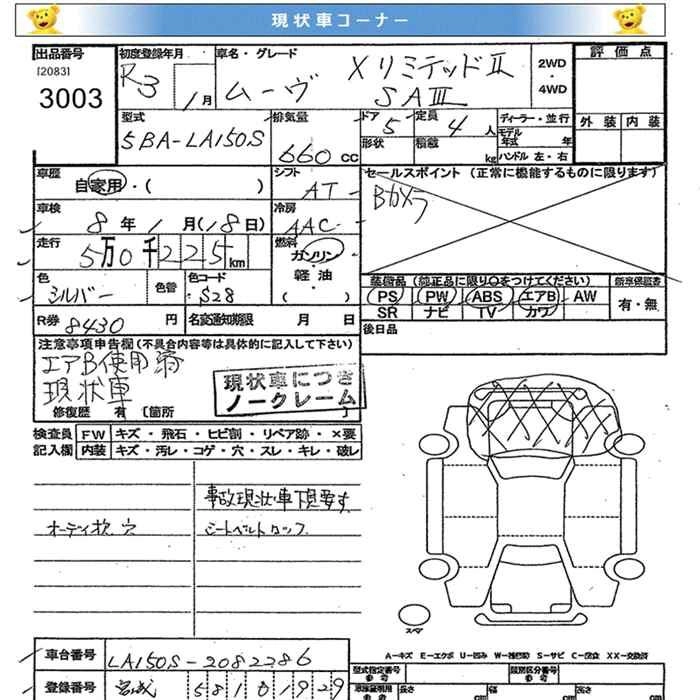 現状車コーナー
出品番号 初度登録年月 車名・グレード 2WD・4WD 評価点
[2083] 3003 R3 1月 ムーヴ XリミテッドⅡ SAⅢ 外装 内装
型式 排気量 ドア 定員 ディーラー・並行
5BA-LA150S 660cc 5 4人 モデル年式 年
形状 積載 kg ハンドル 左・右
車歴 自家用・( ) シフト AT セールスポイント (正常に機能するものに限ります)
Bカメラ
車検 8年1月(18日) 冷房 AAC
走行 5万0千225km 燃料 ガソリン 軽油 ( )
色 シルバー 色替 色コード S28
装備品 (純正品に限り○をつけてください) 新車保証書
PS PW ABS エアB AW 有・無
SR ナビ TV カワ
R券 8430円 名変通知期限 月 日 後日品
注意事項申告欄(不具合内容等は具体的に記入して下さい)
エアB使用済
現状車
現状車につき
ノークレーム
修復歴 有 [箇所 ]
検査員 FW キズ・飛石・ヒビ割・リペア跡・×要
記入欄 内装 キズ・汚レ・コゲ・穴・スレ・キレ・破レ
事故現状車下見要す
オーディオ穴 シートベルトロック
スペア
A−キズ E−エクボ U−凹み S−サビ C−腐食 XX−交換済
車台番号 LA150S-2082286 型式指定番号 参考 類別区分番号 参考
登録番号 宮城 581 0 1929 長さ cm 幅 cm 高さ cm